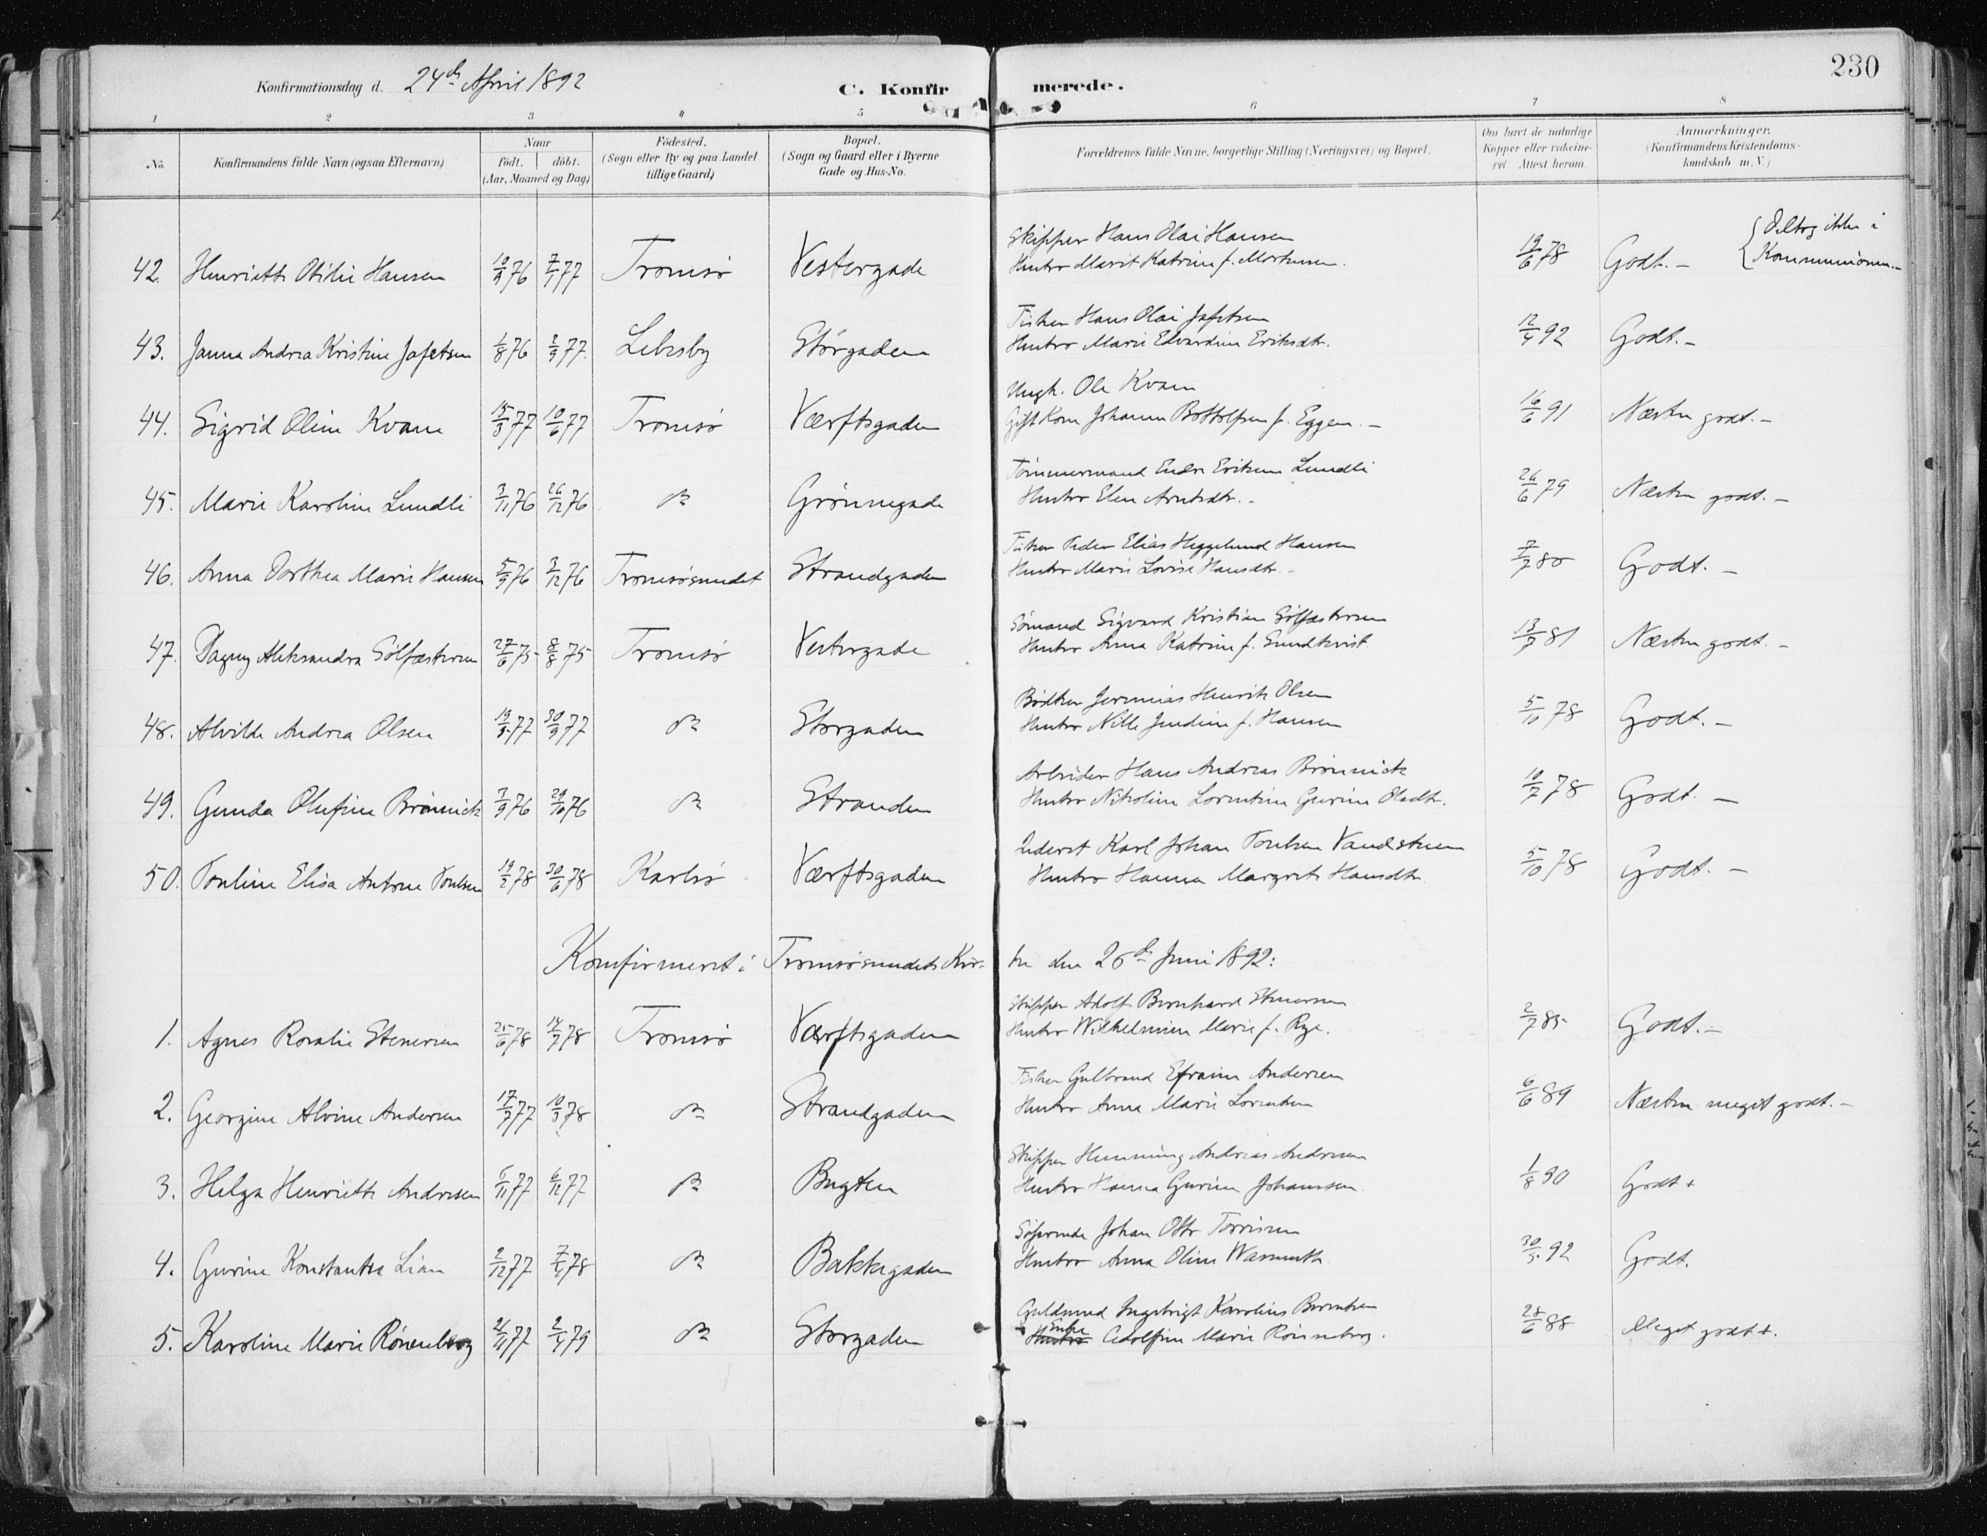 230
Konfirmationsdag d. 24de April 1892 C. Konfirmerede.
1 2 3 4 5 6 7 8
No. Konfirmandens fulde Navn (ogsaa Efternavn) Naar født. døbt. (Aar, Maaned og Dag) Fødested. (Sogn eller By og paa Landet tillige Gaard) Bopæl. (Sogn og Gaard eller i Byerne Gade og Hus-No. Forældrenes fulde Navne, borgerlige Stilling (Næringsvei) og Bopæl. Om havt de naturlige Kopper eller vakcineret Attest herom. Anmærkninger. (Konfirmandens Kristendomskundskab m. V.)
Skipper Hans Olai Hansen {Deltog ikke i
42. Henriette Otilie Hansen 10/9 76 7/1 77 Tromsø Vestergade Hustro Marit Katrine f. Mortensen. 19/6 78 Godt. – Kommunionen. –
Fisker Hans Olai Jafetsen
43. Janna Andrea Kristine Jafetsen 1/8 76 2/9 77. Lebesby Storgaden Hustro Marie Edvardine Eriksdtr. 12/4 92 Godt. –
Ungk. Ole Kvam
44. Sigrid Oline Kvam 15/3 77 10/6 77 Tromsø Værftsgaden Gift Kone Johanna Bottolfsen f. Eggen. – 16/6 91 Næsten godt. –
Tømmermand Endre Eriksen Lundli
45. Marie Karoline Lundli 3/11 76 26/12 76 do Grønnegade Hustro Elen Arntsdtr. – 26/6 79 Næsten godt. –
Fisker Peder Elias Heggelund Hansen
46. Anna Dorthea Marie Hansen 5/9 76 3/12 76 Tromsøsundet Strandgaden Hustro Marie Lovise Hansdtr. – 7/7 80 Godt. –
Sømand Sigvard Kristian Sølfæstersen
47. Dagny Aleksandra Sølfæstersen 27/6 75 8/8 75 Tromsø Vestergade Hustro Anna Katrine f. Sundkvist 13/7 81 Næsten godt. –
Bødker Jeremias Henrik Olsen
48. Alvilde Andrea Olsen 30/9 77 do Storgaden Hustro Nille Jendine f. Hansen 5/10 78 Godt. –
Arbeider Hans Andreas Brønnick
49. Gunda Olufine Brønnick 7/9 76 29/10 76 do Stranden Hustro Nikoline Lorentine Gurine Olsdtr. 10/7 78 Godt. –
Inderst Karl Johan Poulsen Vandstuen
50. Pouline Elisa Antone Poulsen 19/2 78 30/6 78 Karlsø Værftsgaden Hustro Hanna Margrete Hansdtr 5/10 78 Godt. –
Konfirmeret i Tromsøsundets Kirke den 26de Juni 1892:
Skipper Adolf Bernhard Stenersen
1. Agnes Rosalie Stenersen 25/6 78 14/7 78 Tromsø Værftsgaden Hustro Wilhelmine Marie f. Rye. 2/7 85 Godt. –
Fisker Gulbrand Efraim Andersen
2. Georgine Alvine Andersen 17/9 77 10/3 78 do Strandgaden Hustro Anna Marie Lorentsen 6/6 89 Næsten meget godt. –
Skipper Henning Andreas Andresen
3. Helga Henriette Andresen 5/11 77 6/12 77 do Bugten Hustro Hanna Gurine Johannsen. 1/8 90 Godt +
Johan Otto
4. Gurine Konstantse Lian 2/12 77 7/4 78 do Bakkegaden Hustro Anna Oline Warmuth 30/5 92 Godt.
Guldsmed Ingebrigt Karolius Berntsen
5. Karoline Marie Rönenberg 21/11 77 2/4 79 do Storgaden Enke Adolfine Marie Rönneberg. 28/6 88 Meget godt +.